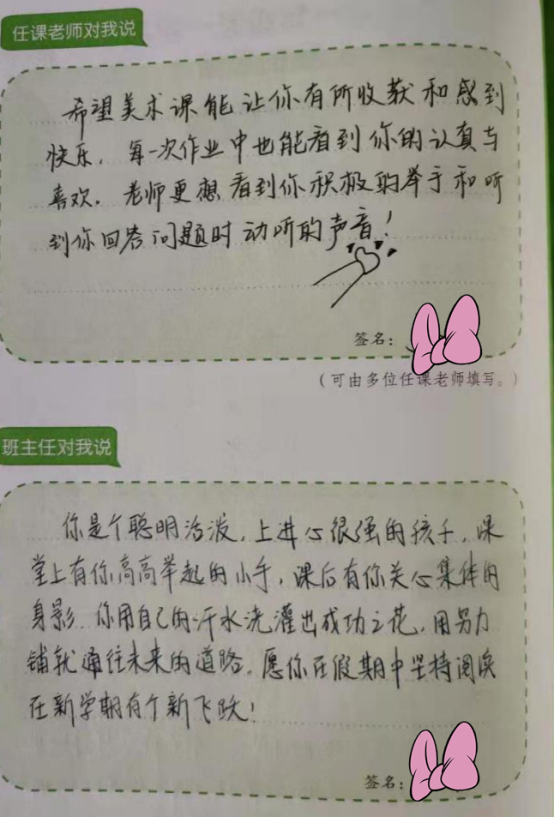 任课老师对我说
希望美术课能让你有所收获和感到
快乐，每一次作业中也能看到你的认真与
喜欢。老师更想看到你积极的举手和听
到你回答问题时动听的声音！
签名：
（可由多位任课老师填写。）
班主任对我说
你是个聪明活泼，上进心很强的孩子，课
堂上有你高高举起的小手，课后有你关心集体的
身影 你用自己的汗水浇灌出成功之花，用努力
铺就通往未来的道路，愿你在假期中坚持阅读
在新学期有个新飞跃！
签名：